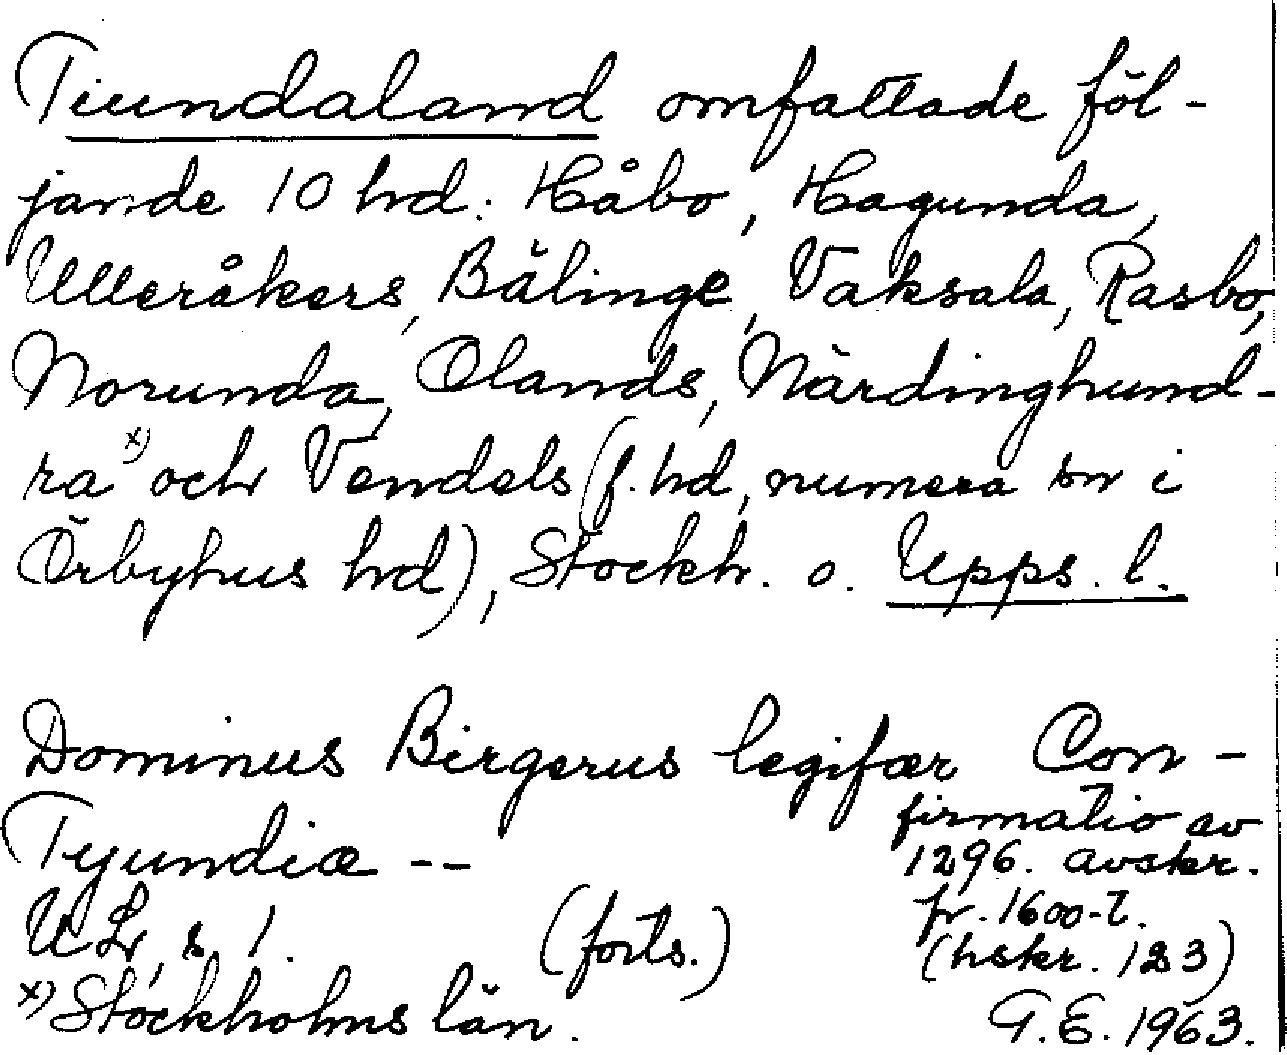 Tiundaland omfattade föl-
jande 10 hrd: Håbo, Hagunda,
Ulleråkers, Bälinge, Vaksala, Rasbo,
Norunda, Olands, Närdinghund-
ra x) och Vendels (f. hrd, numera sn i
Örbyhus hrd), Stockh. o. Upps. l.
Dominus Birgerus legifær Con-
Tyundiæ -- firmatio av
1296. avskr.
UL, s. 1. (forts.) fr. 1600-t.
(hskr. 123)
x) Stockholms län. G.E. 1963.